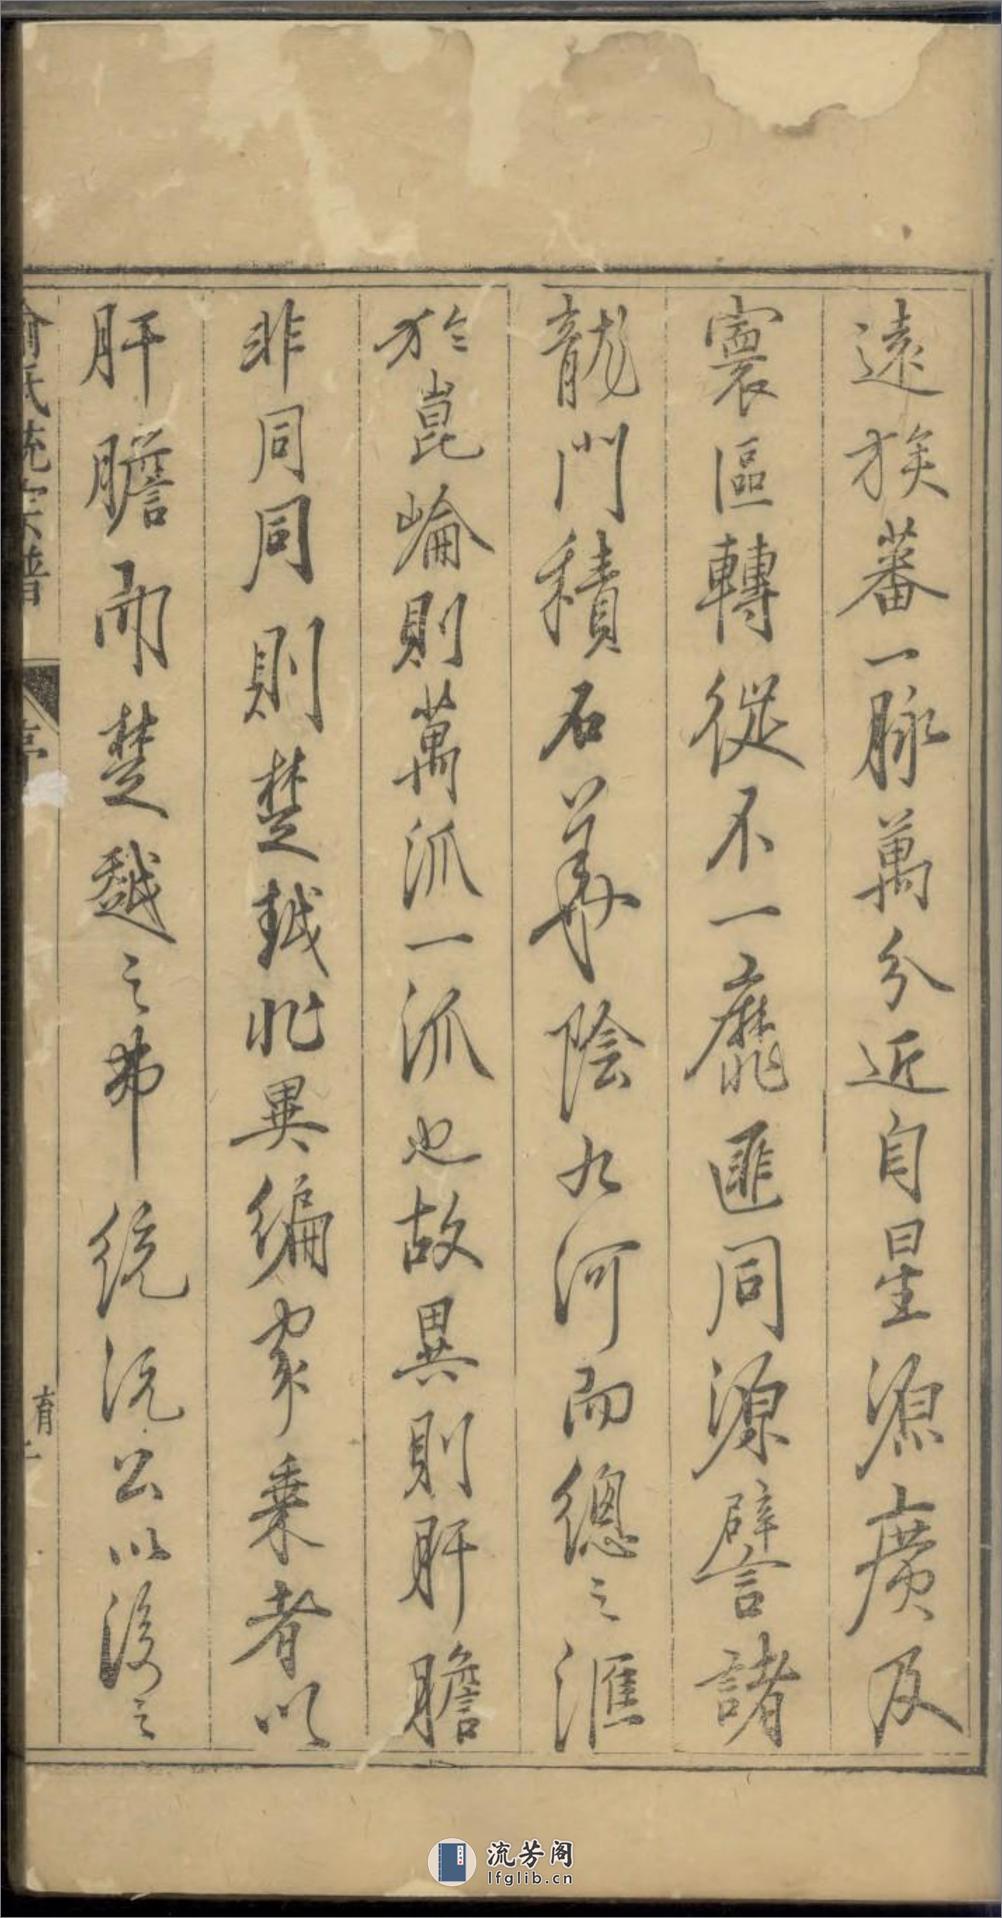 遠族蕃一脉萬分近自星源廣及
寰區轉從不一靡匪同源譬諸
龍門積石華陰九河而總之滙
於崑崙則萬派一派也故異則肝膽
非同同則楚越非異編家乗者以
肝膽而楚越之弗統沅公以後之
俞氏統宗譜
序
流芳阁
lfglib.cn